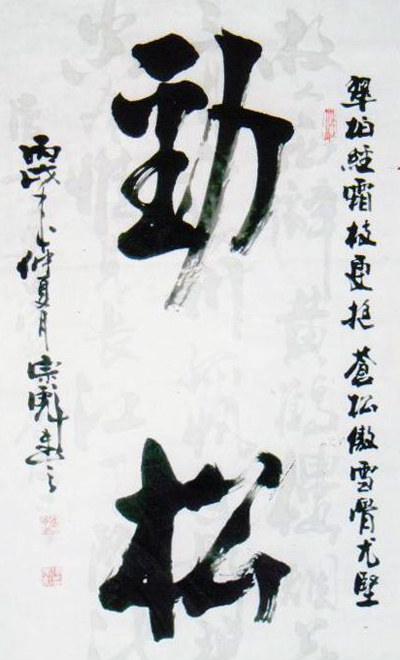 翠柏經霜枝更挺 蒼松傲雪骨尤堅
勁松
丙戌之仲夏月宗彪書之